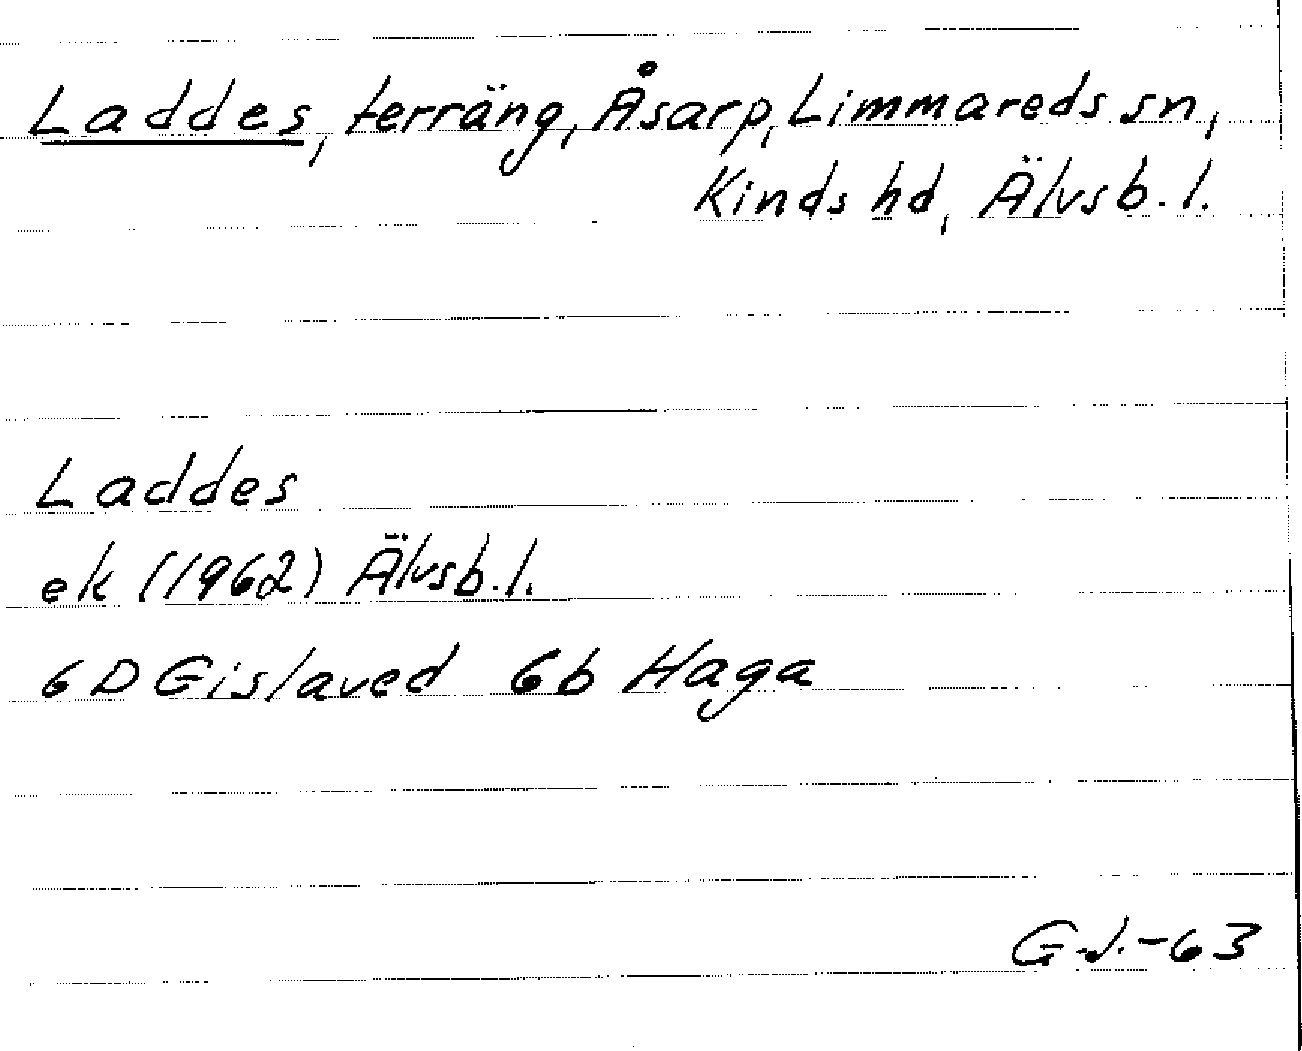 Laddes, terräng, Åsarp, Limmareds sn,
Kinds hd, Älvsb. l.
Laddes
ek (1962) Älvsb. l.
6D Gislaved 6b Haga
G.J.-63